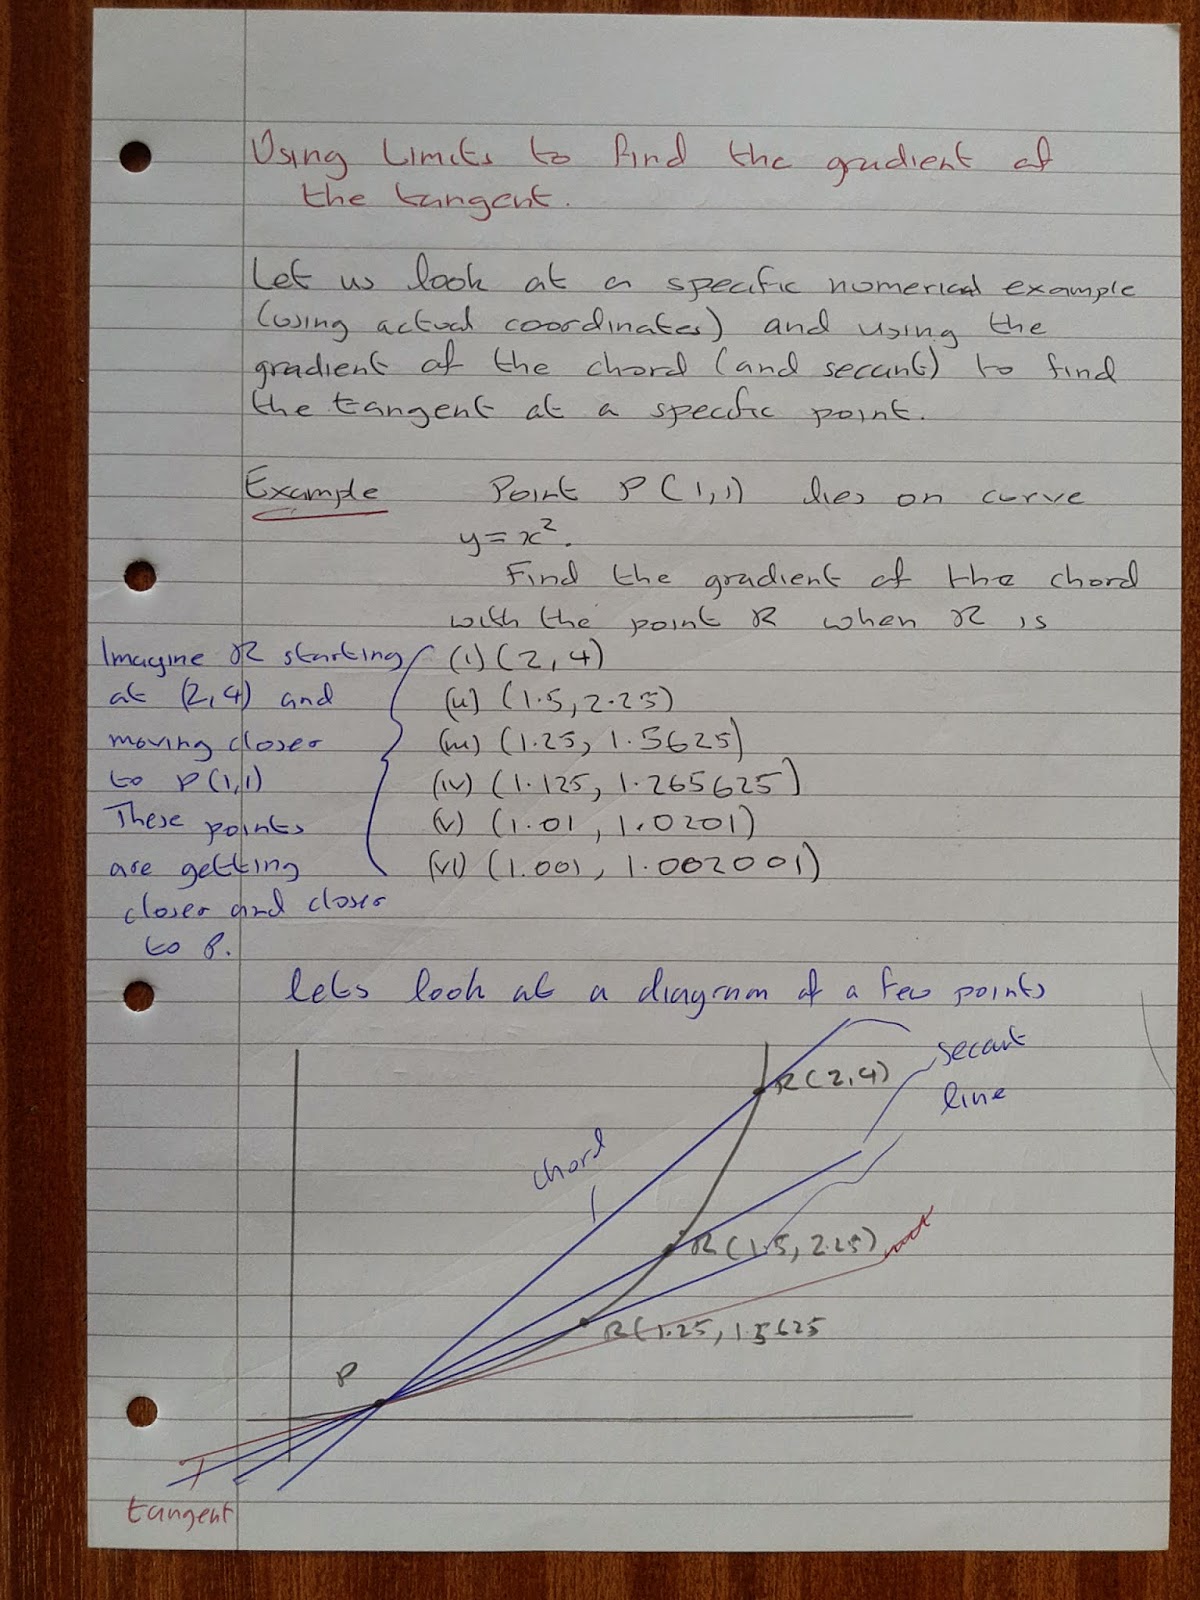 Using Limits to find the gradient of
the tangent.
Let us look at a specific numerical example
(using actual coordinates) and using the
gradient of the chord (and secant) to find
the tangent at a specific point.
Example Point P(1,1) lies on curve
y = x².
Find the gradient of the chord
with the point R when R is
(i) (2,4)
(ii) (1.5, 2.25)
(iii) (1.25, 1.5625)
(iv) (1.125, 1.265625)
(v) (1.01, 1.0201)
(vi) (1.001, 1.002001)
Imagine R starting
at (2,4) and
moving closer
to P(1,1)
These points
are getting
closer and closer
to P.
lets look at a diagram of a few points
secant
line
R(2,4)
chord
R(1.5, 2.25)
R(1.25, 1.5625
P
tangent